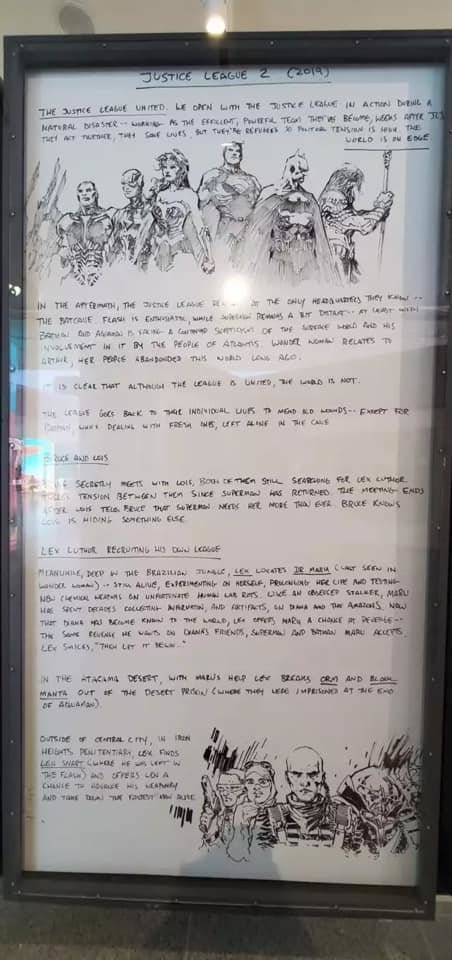 JUSTICE LEAGUE 2 (2019)
THE JUSTICE LEAGUE UNITED. WE OPEN WITH THE JUSTICE LEAGUE IN ACTION DURING A
NATURAL DISASTER -- WORKING AS THE EFFICIENT, POWERFUL TEAM THEY'VE BECOME, WEEKS AFTER JL1
THEY ACT TOGETHER, THEY SAVE LIVES, BUT THEY'RE REFUNDED SO POLITICAL TENSION IS HIGH. THE
WORLD IS ON EDGE
IN THE AFTERMATH, THE JUSTICE LEAGUE AT THE ONLY HEADQUARTERS THEY KNOW --
THE BATCAVE. FLASH IS ENTHUSIASTIC, WHILE SUPERMAN REMAINS A BIT DISTANT -- AT LEAST WITH
BATMAN AND AQUAMAN IS FACING A CONTINUED SUSPICION OF THE SURFACE WORLD AND HIS
INVOLVEMENT IN IT BY THE PEOPLE OF ATLANTIS. WONDER WOMAN RELATES TO
ARTHUR, HER PEOPLE ABANDONED THIS WORLD LONG AGO.
IT IS CLEAR THAT ALTHOUGH THE LEAGUE IS UNITED, THE WORLD IS NOT.
THE LEAGUE GOES BACK TO THEIR INDIVIDUAL LIVES TO MEND OLD WOUNDS -- EXCEPT FOR
BATMAN, WHO'S DEALING WITH FRESH ONES, LEFT ALONE IN THE CAVE
BRUCE AND LOIS
BRUCE SECRETLY MEETS WITH LOIS, BOTH OF THEM STILL SEARCHING FOR LEX LUTHOR.
THERE'S TENSION BETWEEN THEM SINCE SUPERMAN HAS RETURNED. THE MEETING ENDS
AFTER LOIS TELLS BRUCE THAT SUPERMAN NEEDS HER MORE THAN EVER. BRUCE KNOWS
LOIS IS HIDING SOMETHING ELSE.
LEX LUTHOR RECRUITING HIS OWN LEAGUE
MEANWHILE, DEEP IN THE BRAZILIAN JUNGLE, LEX LOCATES DR MARU (LAST SEEN IN
WONDER WOMAN) -- STILL ALIVE, EXPERIMENTING ON HERSELF, PROLONGING HER LIFE AND TESTING
NEW CHEMICAL WEAPONS ON UNFORTUNATE HUMAN LAB RATS. LIKE AN OBSESSED STALKER, MARU
HAS SPENT DECADES COLLECTING INFORMATION, AND ARTIFACTS, ON DIANA AND THE AMAZONS. NOW
THAT DIANA HAS BECOME KNOWN TO THE WORLD, LEX OFFERS MARU A CHANCE AT REVENGE --
THE SAME REVENGE HE WANTS ON DIANA'S FRIENDS, SUPERMAN AND BATMAN. MARU ACCEPTS.
LEX SMILES, "THEN LET IT BEGIN..."
IN THE ATACAMA DESERT, WITH MARU'S HELP LEX BREAKS ORM AND BLACK
MANTA OUT OF THE DESERT PRISON (WHERE THEY WERE IMPRISONED AT THE END
OF AQUAMAN).
OUTSIDE OF CENTRAL CITY, IN IRON
HEIGHTS PENITENTIARY, LEX FINDS
LEN SNART (WHERE HE WAS LEFT IN
THE FLASH) AND OFFERS LEN A
CHANCE TO ADVANCE HIS WEAPONRY
AND TAKE DOWN THE FASTEST MAN ALIVE